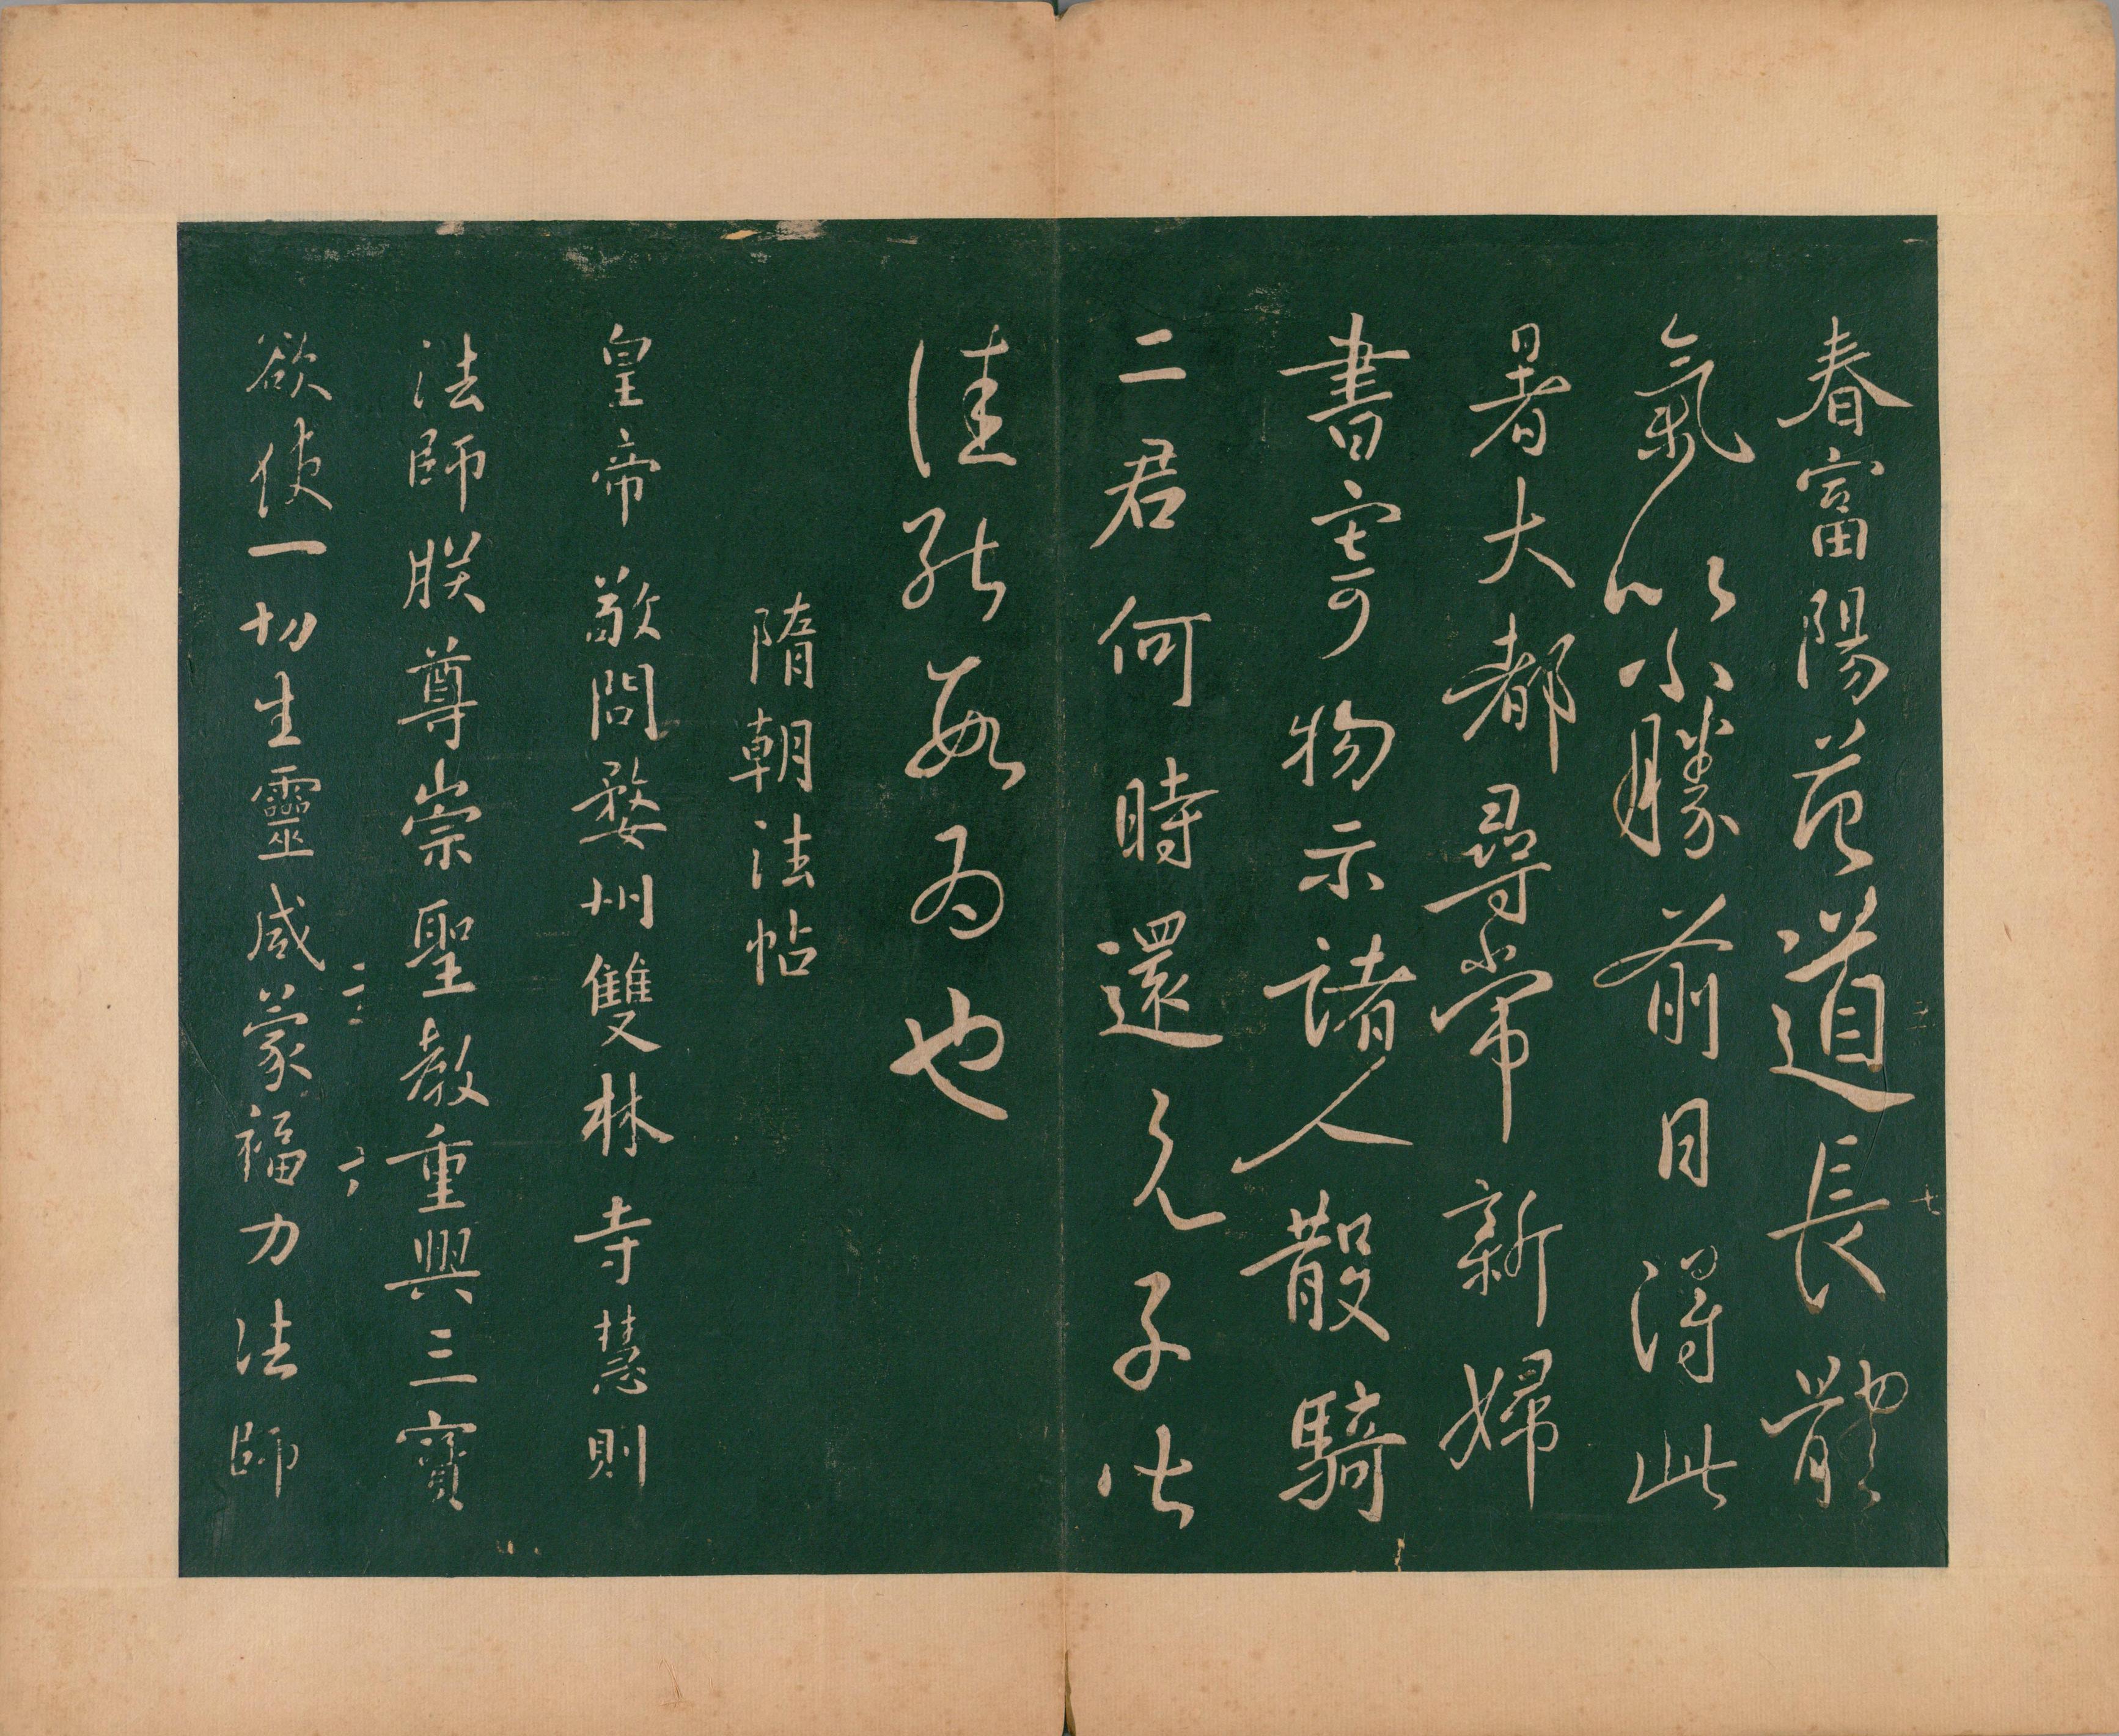 春富陽范道長體
氣以小勝前日得此
暑大都尋常新婦
書寄物示諸人散騎
二君何時還兄子比
佳耿耿為也
隋朝法帖
皇帝敬問婺州雙林寺慧則
法師朕尊崇聖教重興三寶
欲使一切生靈咸蒙福力法師